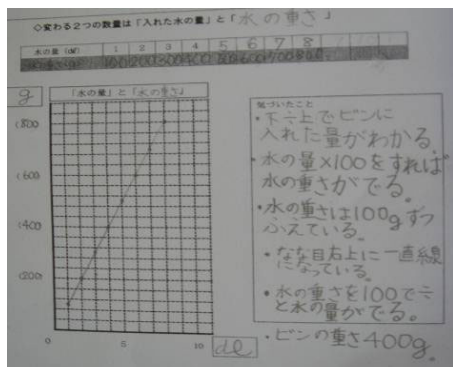 ◇変わる２つの数量は「入れた水の量」と「水の重さ」
水の量(dℓ) 1 2 3 4 5 6 7 8
100 200 300 400 500 600 700 800
g
「水の量」と「水の重さ」
(800
(600
(400
(200)
0 5 10 dℓ
気づいたこと
・下÷上でビンに
入れた量がわかる。
・水の量×100をすれば
水の重さがでる。
・水の重さは100gずつ
ふえている。
・なな目右上に一直線
になっている。
・水の重さを100で÷
と水の量がでる。
・ビンの重さ400g。